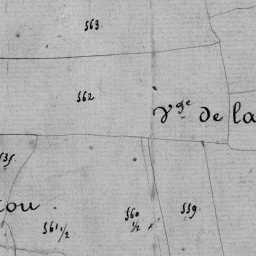 563
562
Vge de la
535
cou.
561 1/2
560 1/2
559